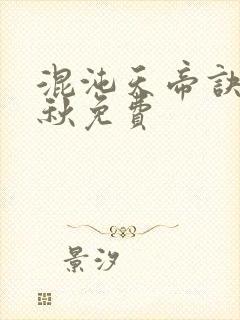 混沌天帝訣
秋免費
景汐